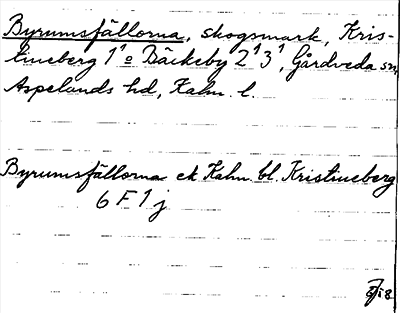 Byrumsfällorna, skogsmark, Kris-
tineberg 1¹ o Bäckeby 2¹3¹, Gårdveda sn,
Aspelands hd, Kalm. l.
Byrumsfällorna ek Kalm. bl. Kristineberg
6 F 1 j